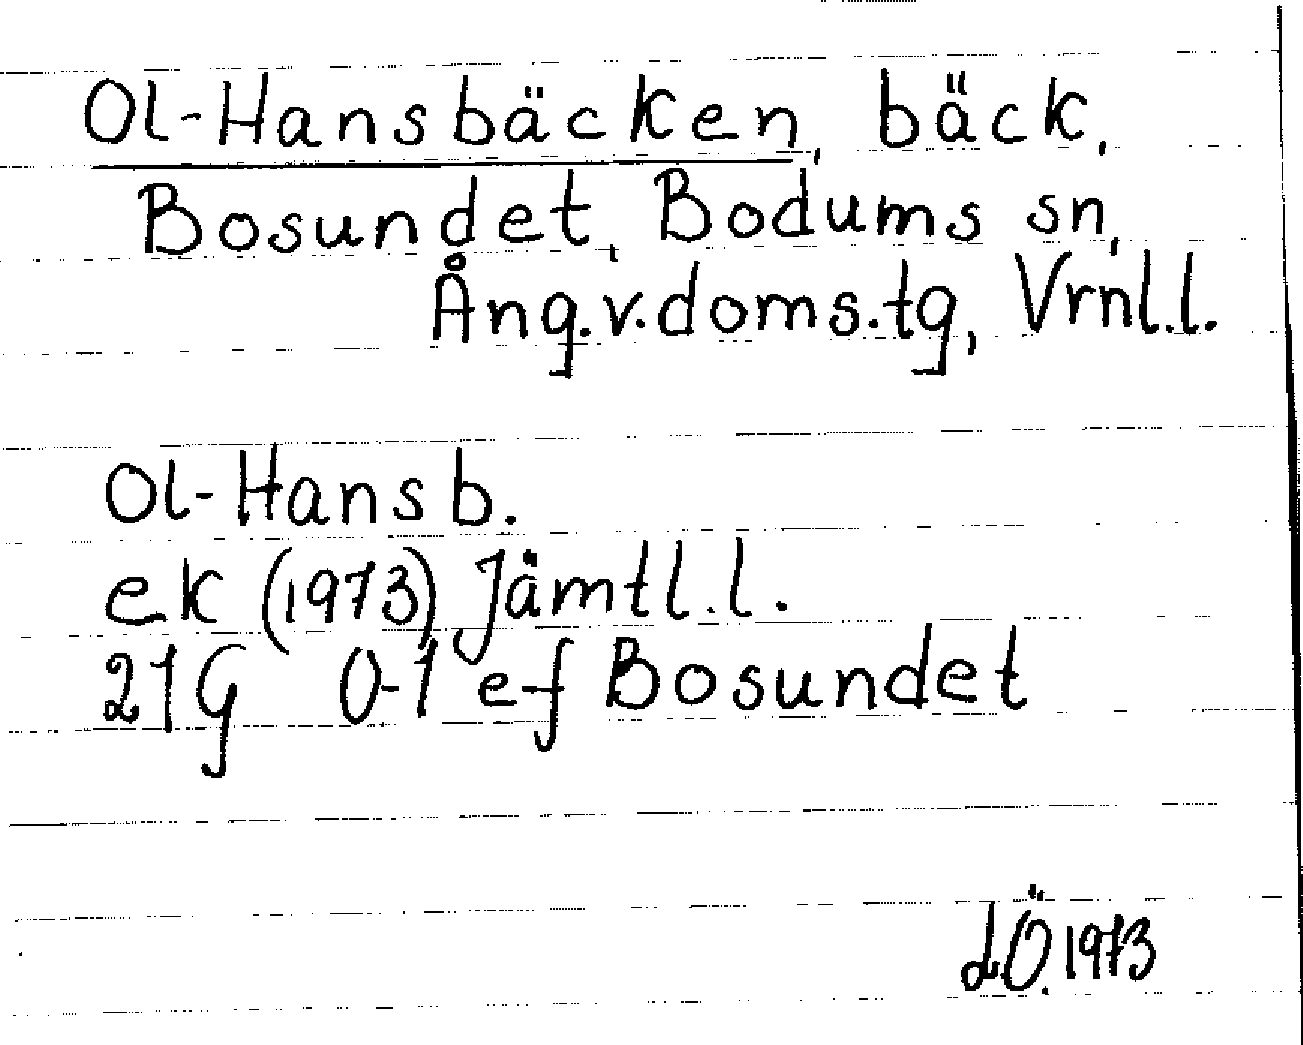 Ol-Hansbäcken, bäck,
Bosundet, Bodums sn,
Ång.v.doms.tg, Vrnl.l.
Ol-Hansb.
ek (1973) Jämtl.l.
21G 0-1 e-f Bosundet
L.Ö. 1973